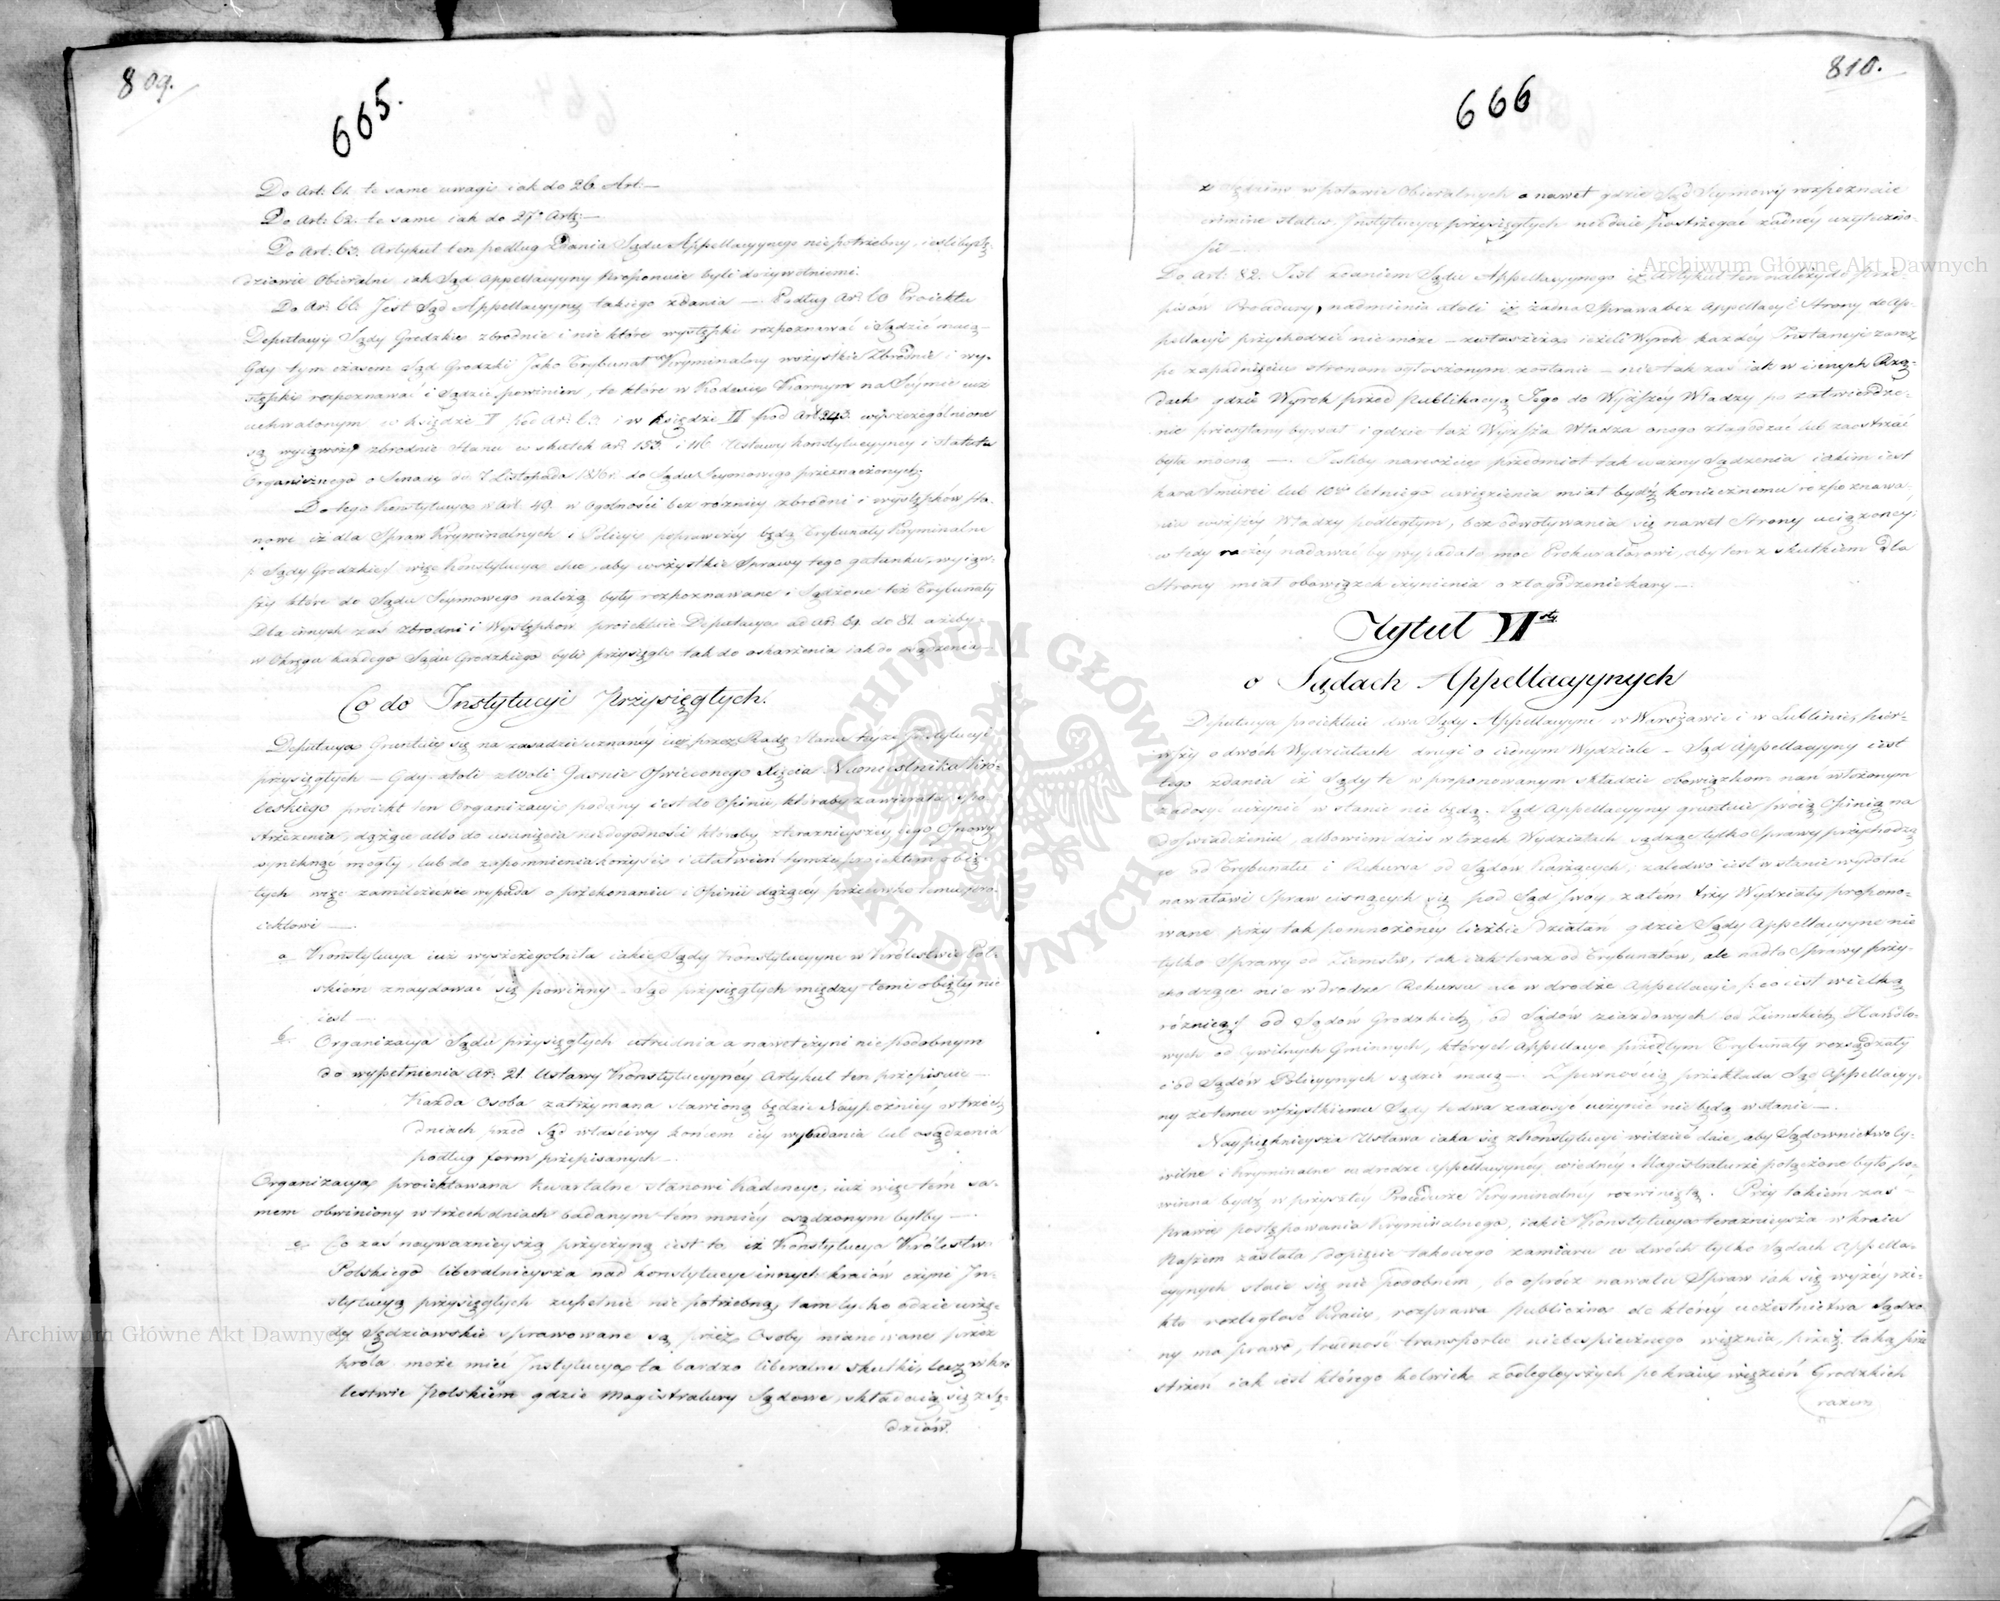 809.
665.
Do Art: 61. te same uwagi iak do 26. Art:—
Do Art: 62. te same iak do 27º Artº:—
Do Art: 63. Artykuł ten podług Zdania Sądu Appellacyynego niepotrzebny, ieśliby Sę-
dziowie Obieralni, iak Sąd Appellacyyny proponuie byli dożywotniemi.
Do Art. 66. Jest Sąd Appellacyyny takiego zdania —. Podług Art. 60 Proiektu
Deputacyi Sądy Grodzkie zbrodnie i niektóre występki rozpoznawać i Sądzić maią—
Gdy tym czasem Sąd Grodzki Jako Trybunał Kryminalny wszystkie Zbrodnie i wy-
stępki rozpoznawać i Sądzić powinien, te które w Kodexie Karnym na Seymie
uchwalonym w księdze I pod Art. i w księdze II pod Art 243. wyszczególnione
są wyiąwszy zbrodnie Stanu w skutek Art. 153. i 116. Ustawy Konstytucyyney i Statutu
Organicznego o Senacie do Sądu Seymowego przeznaczonych.
Do tego Konstytucya w Art. 49. w ogólności bez różnicy zbrodni i występków sta-
nowi iż dla Spraw Kryminalnych i Policyi poprawczéy będą Trybunały Kryminalne
/: Sądy Grodzkie/ więc Konstytucya chce, aby wszystkie Sprawy tego gatunku, wyiąw-
szy które do Sądu Seymowego należą były rozpoznawane i Sądzone też Trybunały
Dla innych zaś Zbrodni i Występków proiektuie Deputacya od Art. 64. do 81. ażeby
w Okręgu każdego Sądu Grodzkiego byli przysięgli tak do oskarżenia iak do osądzenia—
Co do Instytucyi Przysięgłych.
Deputacya Gruntuie się na zasadzie uznanéy iuż przez Radę Stanu teyże Instytucyi
przysięgłych — Gdy atoli z Woli Jaśnie Oświeconego Xięcia Namiestnika Kró-
lewskiego proiekt ten Organizacyi podany iest do Opinii, któraby zawierała spo-
strzeżenia, dążące albo do usunięcia niedogodności któreby z teraznieyszey iego Osnowy
wyniknąć mogły, lub do zapewnienia korzyści i ułatwień tymże proiektem obię-
tych więc zamilczenie wypada o przekonaniu i Opinii dążącéy przeciwko temu pro-
iektowi —.
a. Konstytucya iuż wyszczególniła iakie Sądy Konstytucyyne w Królestwie Pol-
skiem znaydować się powinny — Sąd przysięgłych między temi obięty nie
iest —.
b. Organizacya Sądu przysięgłych utrudnia a nawet czyni niepodobnym
do wypełnienia Art. 21. Ustawy Konstytucyynéy Artykuł ten przepisuie—
Każda Osoba zatrzymana stawioną będzie Naypóźniéy w trzech
dniach przed Sąd właściwy końcem iéy wybadania lub osądzenia
podług form przepisanych —.
Organizacya proiektowana kwartalne stanowi Kadencye, iuż więc tém sa-
mem obwiniony w trzech dniach badanym tem mniéy osądzonym byłby —.
c. Co zaś nayważnieyszą przyczyną iest to iż Konstytucya Królestwa
Polskiego liberalnieysza nad konstytucye innych kraiów czyni In-
stytucyą przysięgłych zupełnie nie potrzebną, tam tylko gdzie urzę-
dy Sędziowskie sprawowane są przez Osoby mianowane przez
króla może mieć Instytucya ta bardzo liberalne skutki, lecz w Kró-
lestwie Polskiém gdzie Magistratury Sądowe, składaią się z Sę-
dziów.
810.
666
z Sędziów w połowie Obieralnych a nawet gdzie Sąd Seymowy rozpoznaie
crimina status, Instytucya przysięgłych niedaie postrzegać żadnéy użyteczno-
ści —.
Do Art: 82. Jest zdaniem Sądu Appellacyynego iż Artykuł ten należy do prze-
pisów Procedury, nadmienia atoli iż żadna Sprawa bez Appellacyi Strony do Ap-
pellacyi przychodzić nie może — zwłaszcza ieżeli Wyrok każdéy Instancyi zaraz
po zapadnięciu stronom ogłoszonym zostanie — nie tak zaś iak w innych Rzą-
dach gdzie Wyrok przed publikacyą Jego do Wyższéy Władzy po zatwierdze-
nie przesyłany bywał i gdzie taż Wyższa Władza onego złagodzać lub zaostrzać
była mocną —. Jeśliby nareszcie przedmiot tak ważny Sądzenia iakim iest
kara Śmierci lub 10cio letniego uwięzienia miał bydź koniecznemu rozpoznawa-
niu wyższéy Władzy podległym, bez odwoływania się nawet Strony uciążoney;
wtedy raczéy nadawać by wypadało moc Prokuratorowi, aby ten z skutkiem dla
Strony miał obowiązek czynienia o złagodzenie kary —.
Tytuł VIsty
o Sądach Appellacyynych
Deputacya proiektuie dwa Sądy Appellacyyne w Warszawie i w Lublinie, pierw-
wszy o dwóch Wydziałach drugi o iednym Wydziale — Sąd Appellacyyny iest
tego zdania iż Sądy te w proponowanym składzie obowiązkom nań włożonym
zadosyć uczynić w stanie nie będą. Sąd Appellacyyny gruntuie swoią Opinią na
doświadczeniu, albowiem dziś w trzech Wydziałach sądząc tylko Sprawy przychodzą-
ce od Trybunału i Rekursa od Sądów Karzących, zaledwo iest w stanie wydołać
nawałowi Spraw cisnących się pod Sąd swoy, zatém trzy Wydziały propono-
wane przy tak pomnożonéy liczbie działań gdzie Sądy Appellacyyne nie
tylko Sprawy od Ziemstw, iak iak teraz od Trybunałów, ale nadto Sprawy przy-
chodzące nie w drodze Rekursu ale w drodze Appellacyi /: co iest wielką
różnicą :/ od Sądów Grodzkich, od Sądów ziazdowych od Ziemskich Handlo-
wych od cywilnych Gminnych, których Appellacye przedtym Trybunały rozsądzały
i od Sądów Policyinych sądzić maią —. Z pewnością przekłada Sąd Appellacyy-
ny że temu wszystkiemu Sądy te dwa zadosyć uczynić nie będą w stanie —.
Naypięknieysza Ustawa iaka się z Konstytucyi widzieć daie, aby Sądownictwo Cy-
wilne i Kryminalne w drodze Appellacyynéy w iednéy Magistraturze połączone było po-
winna bydź w przyszłey Procedurze Kryminalnéy rozwiniętą. Przy takiém zaś
prawie postępowania Kryminalnego, iakie Konstytucya teraznieysza w kraiu
Naszem zastała dopięcie takowego zamiaru w dwóch tylko Sądach Appella-
cyynych staie się nie podobném, bo oprócz nawału Spraw iak się wyżéy rze-
kło rozległość Kraiu, rozprawa publiczna do któréy uczestnictwa Sądzo-
ny ma prawo, trudność transportu niebespiecznego więźnia, przez taką prze-
strzeń iak iest którego kolwiek z odległeyszych po kraiu więzień Grodzkich
razem
Archiwum Główne Akt Dawnych
Archiwum Główne Akt Dawnych
ARCHIWUM GŁÓWNE AKT DAWNYCH